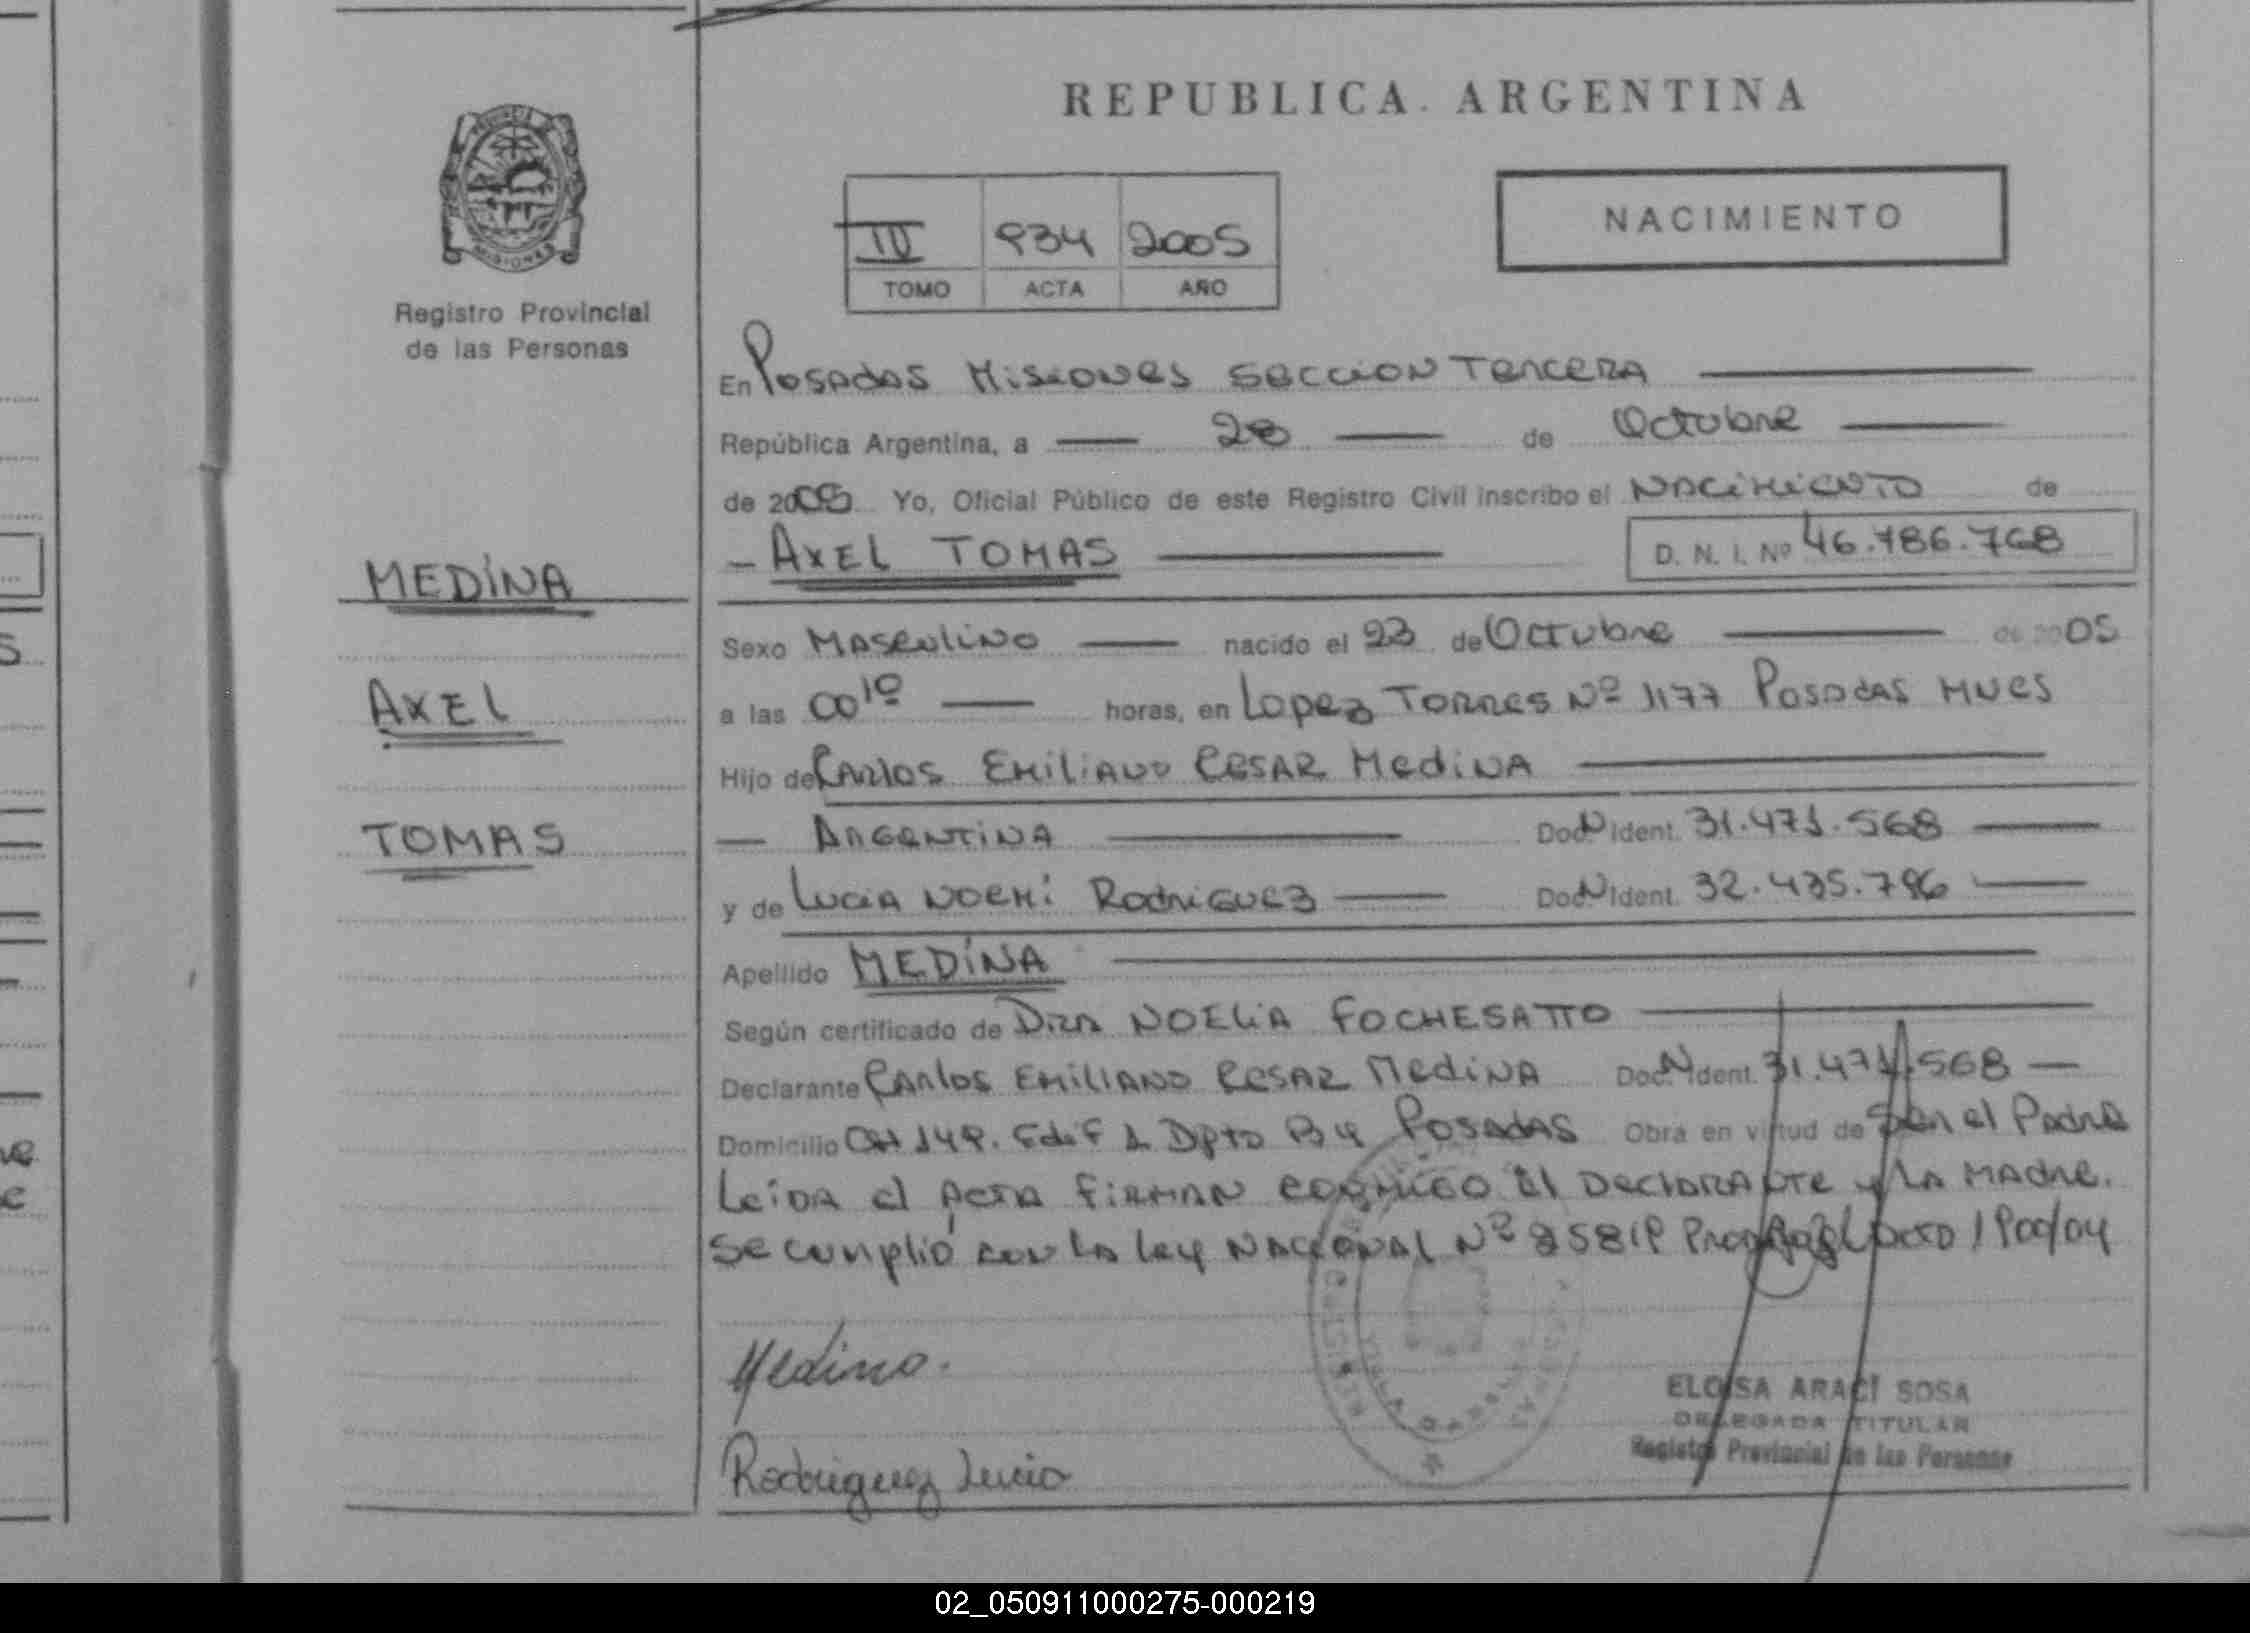 REPUBLICA ARGENTINA
PROVINCIA DE
MISIONES
Registro Provincial
de las Personas
IV 934 2005
TOMO ACTA AÑO
NACIMIENTO
En Posadas Misiones Seccion Tercera
República Argentina, a 28 de Octubre
de 2005 Yo, Oficial Público de este Registro Civil inscribo el NACIMIENTO de
AXEL TOMAS D. N. I. Nº 46.786.768
MEDINA
Sexo Masculino nacido el 23 de Octubre de 2005
AXEL
a las 00 10 horas, en Lopez Torres Nº 1177 Posadas Mnes
Hijo de Carlos Emiliano Cesar Medina
TOMAS
Argentina Doc. N Ident. 31.471.568
y de Lucia Noemí Rodriguez Doc. N Ident. 32.435.796
Apellido MEDINA
Según certificado de Dra NOELIA FOCHESATTO
Declarante Carlos Emiliano Cesar Medina Doc. N Ident. 31.471.568
Domicilio CH 149. Edif 1 Dpto B4 Posadas Obra en virtud de ser el Padre
Leída el Acta firman conmigo el Declarante y la Madre.
Se cumplió con la ley Nacional Nº 25819 Dcto 1900/04
Medina.
Rodriguez Lucia
ELOISA ARACÍ SOSA
DELEGADA TITULAR
Registro Provincial de las Personas
02_050911000275-000219